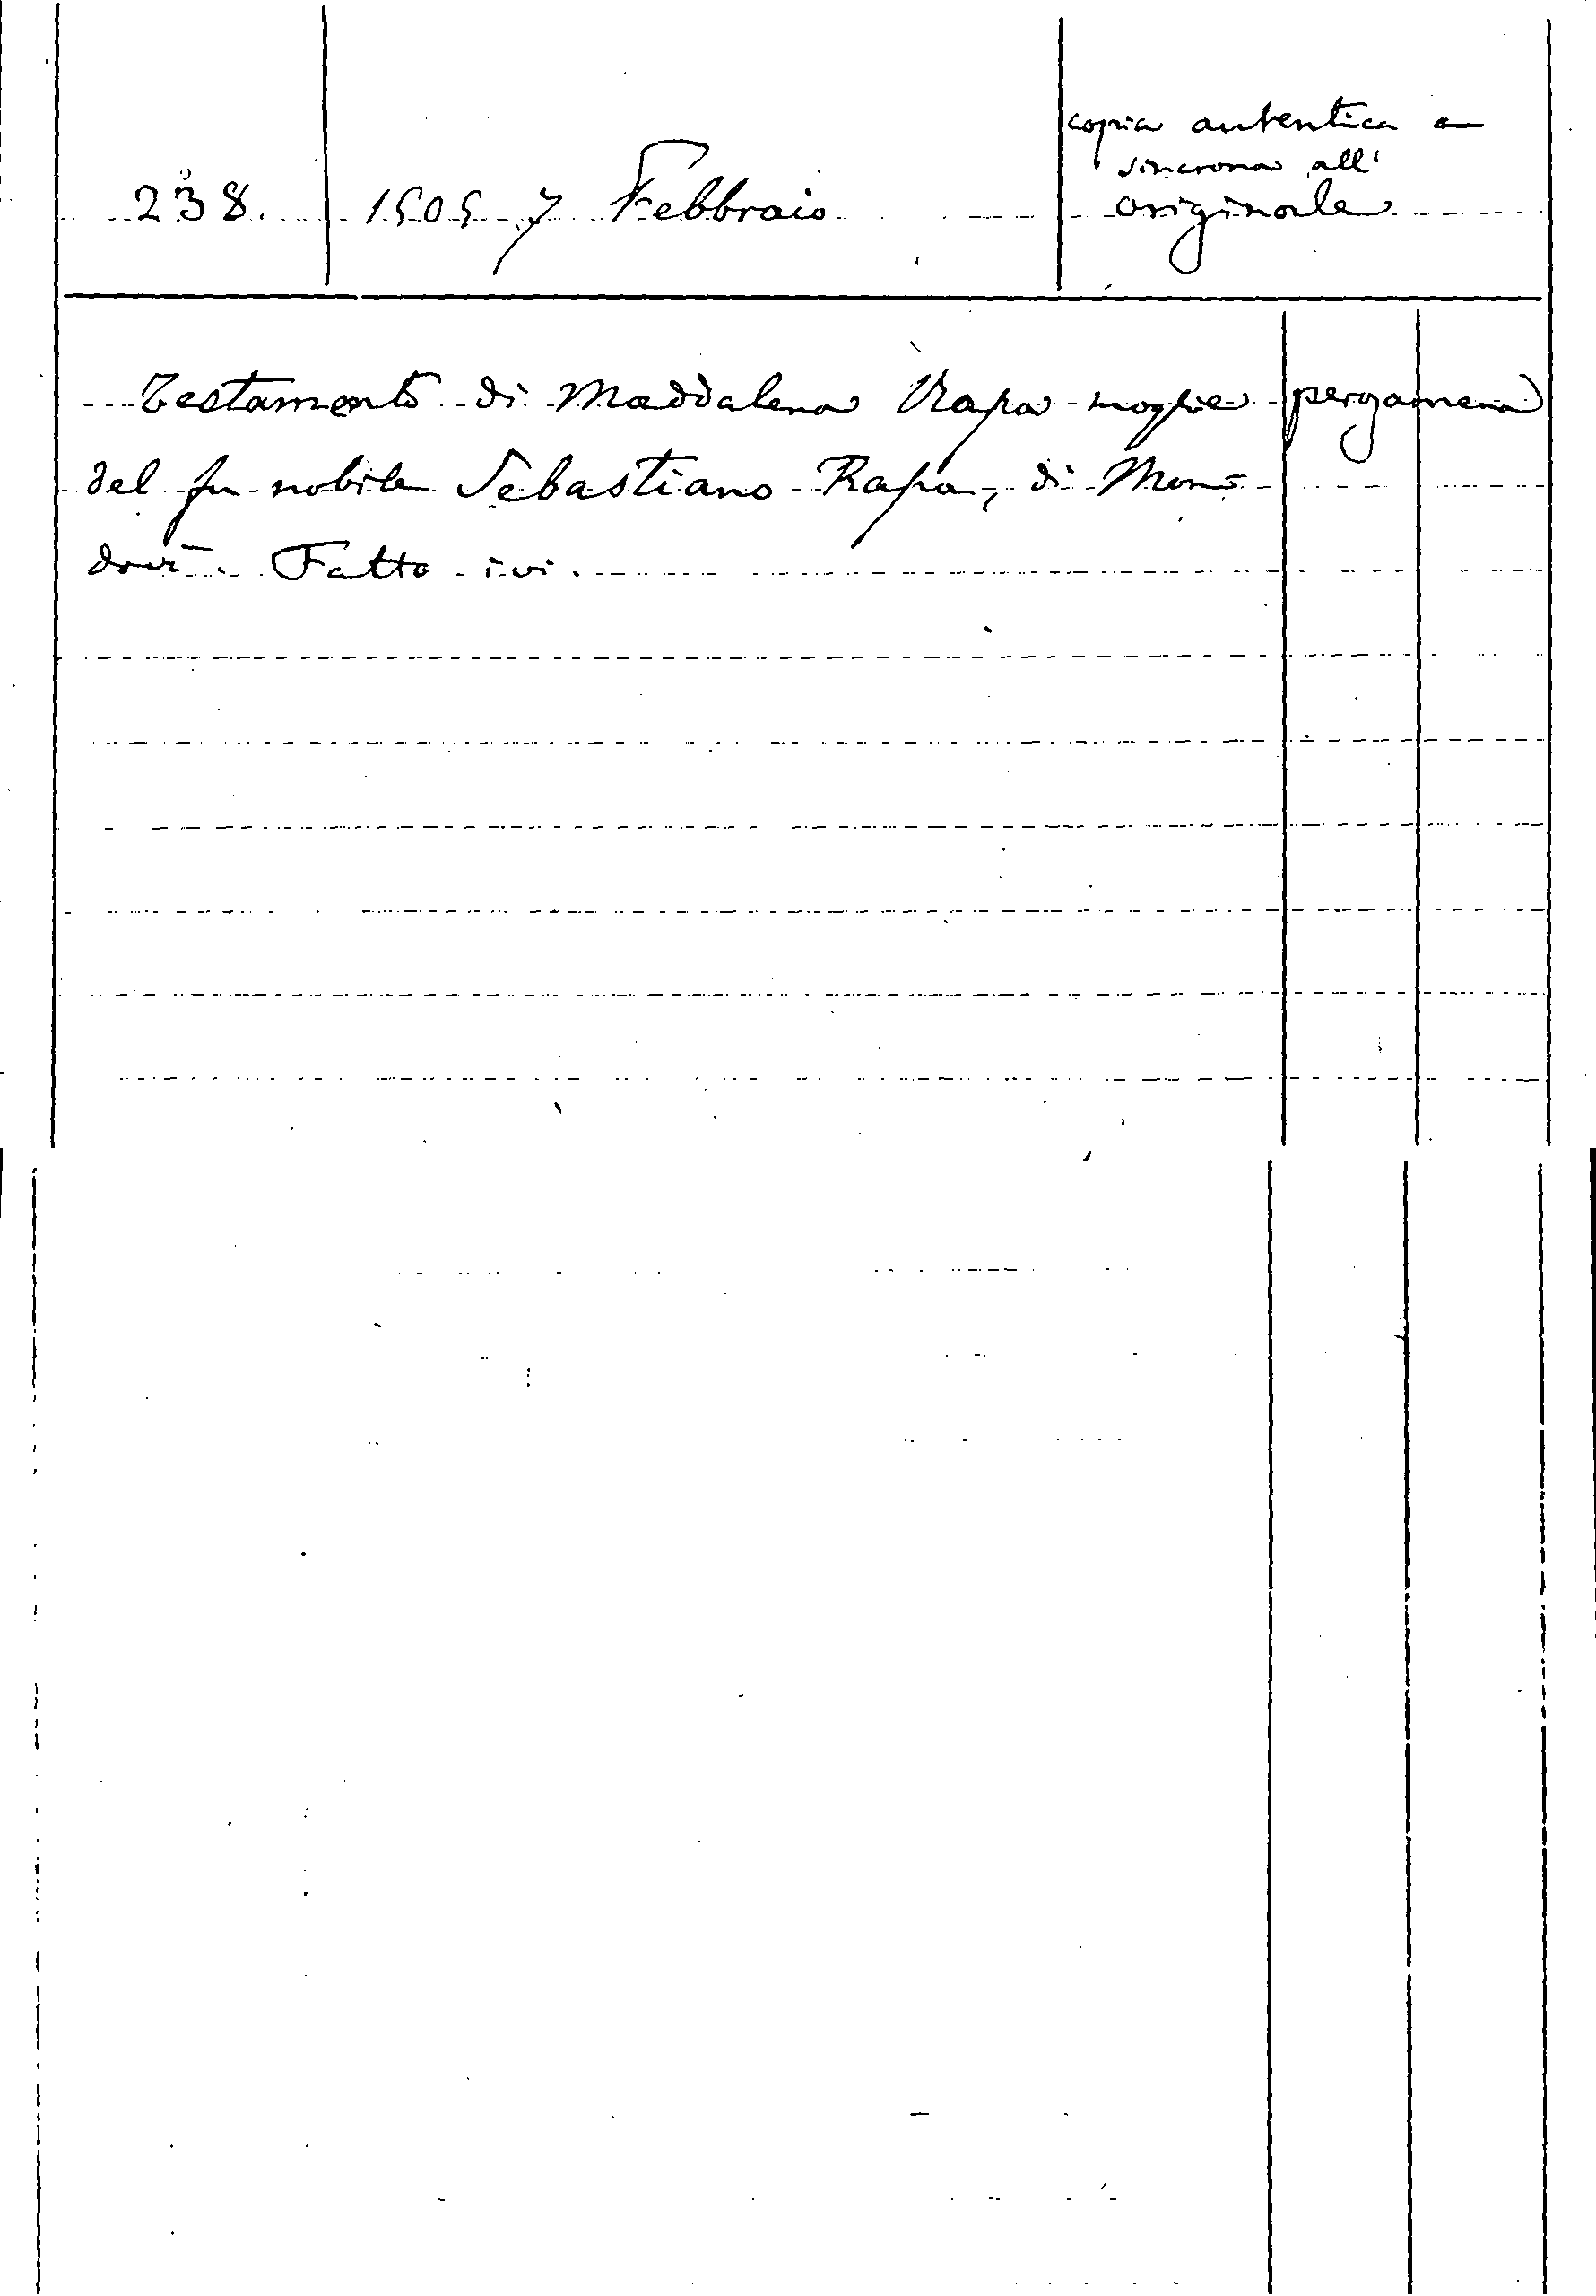 copia autentica e
sincrona all'
238. 1505 7 Febbraio originale
Testamento di Maddalena Rapa moglie pergamena
del fu nobile Sebastiano Rapa, di Mon=
dovì. Fatto ivi.